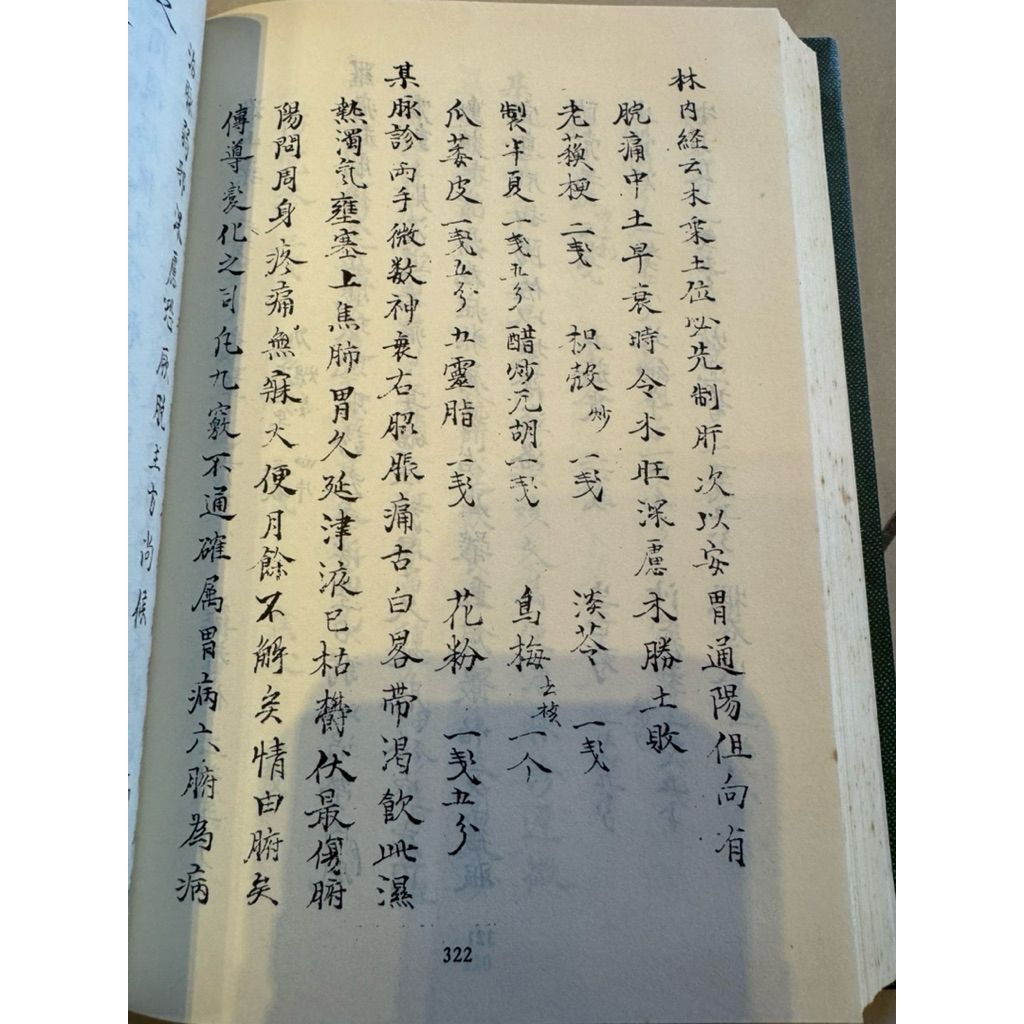 林内経云木乗土位必先制肝次以安胃通陽但向有
脘痛中土早衰時令木旺深慮木勝土敗
老蘓梗二戔 枳殻炒一戔 淡苓一戔
製半夏一戔五分 醋炒元胡一戔 烏梅去核一个
瓜蒌皮一戔五分 五靈脂一戔 花粉一戔五分
某脉診両手微数神衰右胁脹痛舌白畧帶渴飲此濕
熱濁氣壅塞上焦肺胃久延津液已枯欝伏最傷腑
陽問周身疼痛無寐大便月餘不解矣情由腑矣
傳導変化之司凡九竅不通確属胃病六腑為病
應恐厥脱主方尚候
322